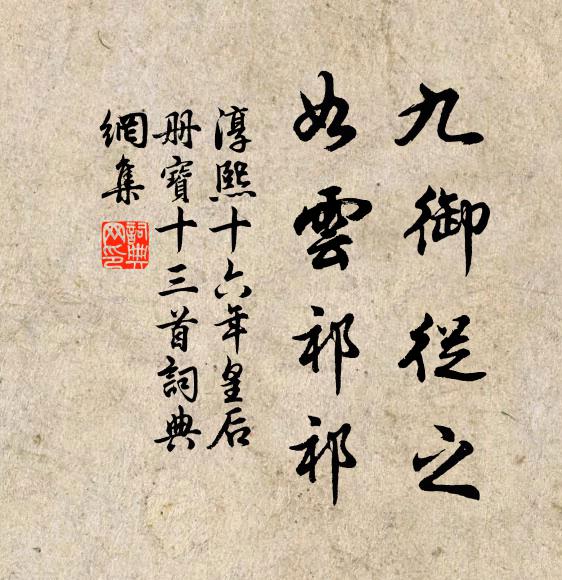 九御從之
如雲祁祁
淳熙十六年皇后
册寶十三首詞典
網集
詞典
网印